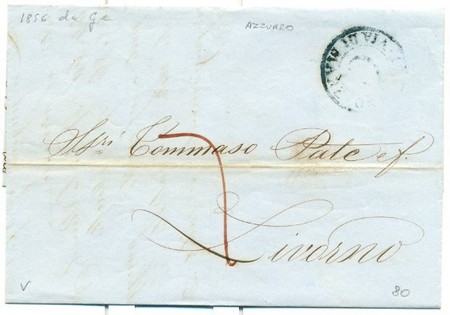 1856 da Ge
AZZURRO
VIA DI MARE
Sigri Tommaso Pate e f.
Livorno
V
80